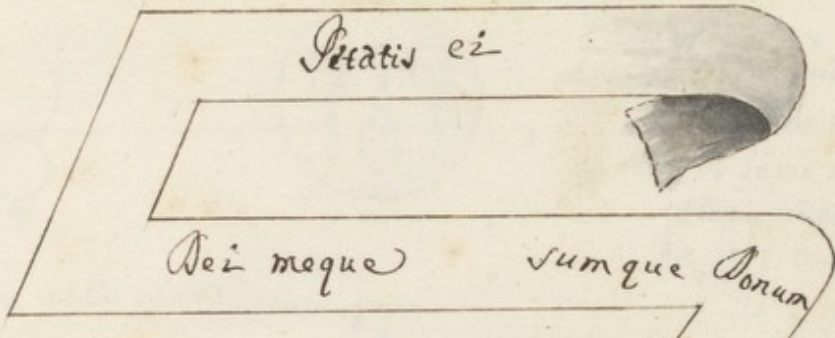 Pitatis ei
Dei meque sumque Donum